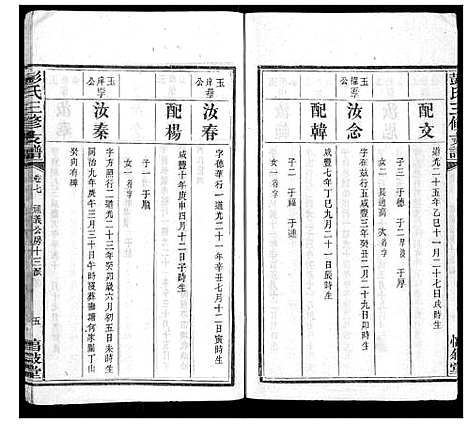 彭氏三修支譜
配文
道光二十五年乙巳十一月二十七日戌時生
子三 于德 于二早歿 于厚
女二 長適高 次字
玉 公
汝念
字在茲行五咸豐三年癸丑二月二十九日卯時生
配韓
咸豐七年丁巳九月二十一日辰時生
子二 于福 于運
女一 待字
敘堂
玉 公
汝春
字德華行一道光二十一年辛丑七月十二日寅時生
配楊
咸豐十年庚申四月十二日子時生
子一 于順
女一 待字
汝秦
字方照行二道光二十三年癸卯歲六月初五日未時生
同治九年庚午三月三十日午時歿葬 塘何家園丁山
癸向有碑
彭氏三修支譜
卷七
公房十三派
五
敘堂